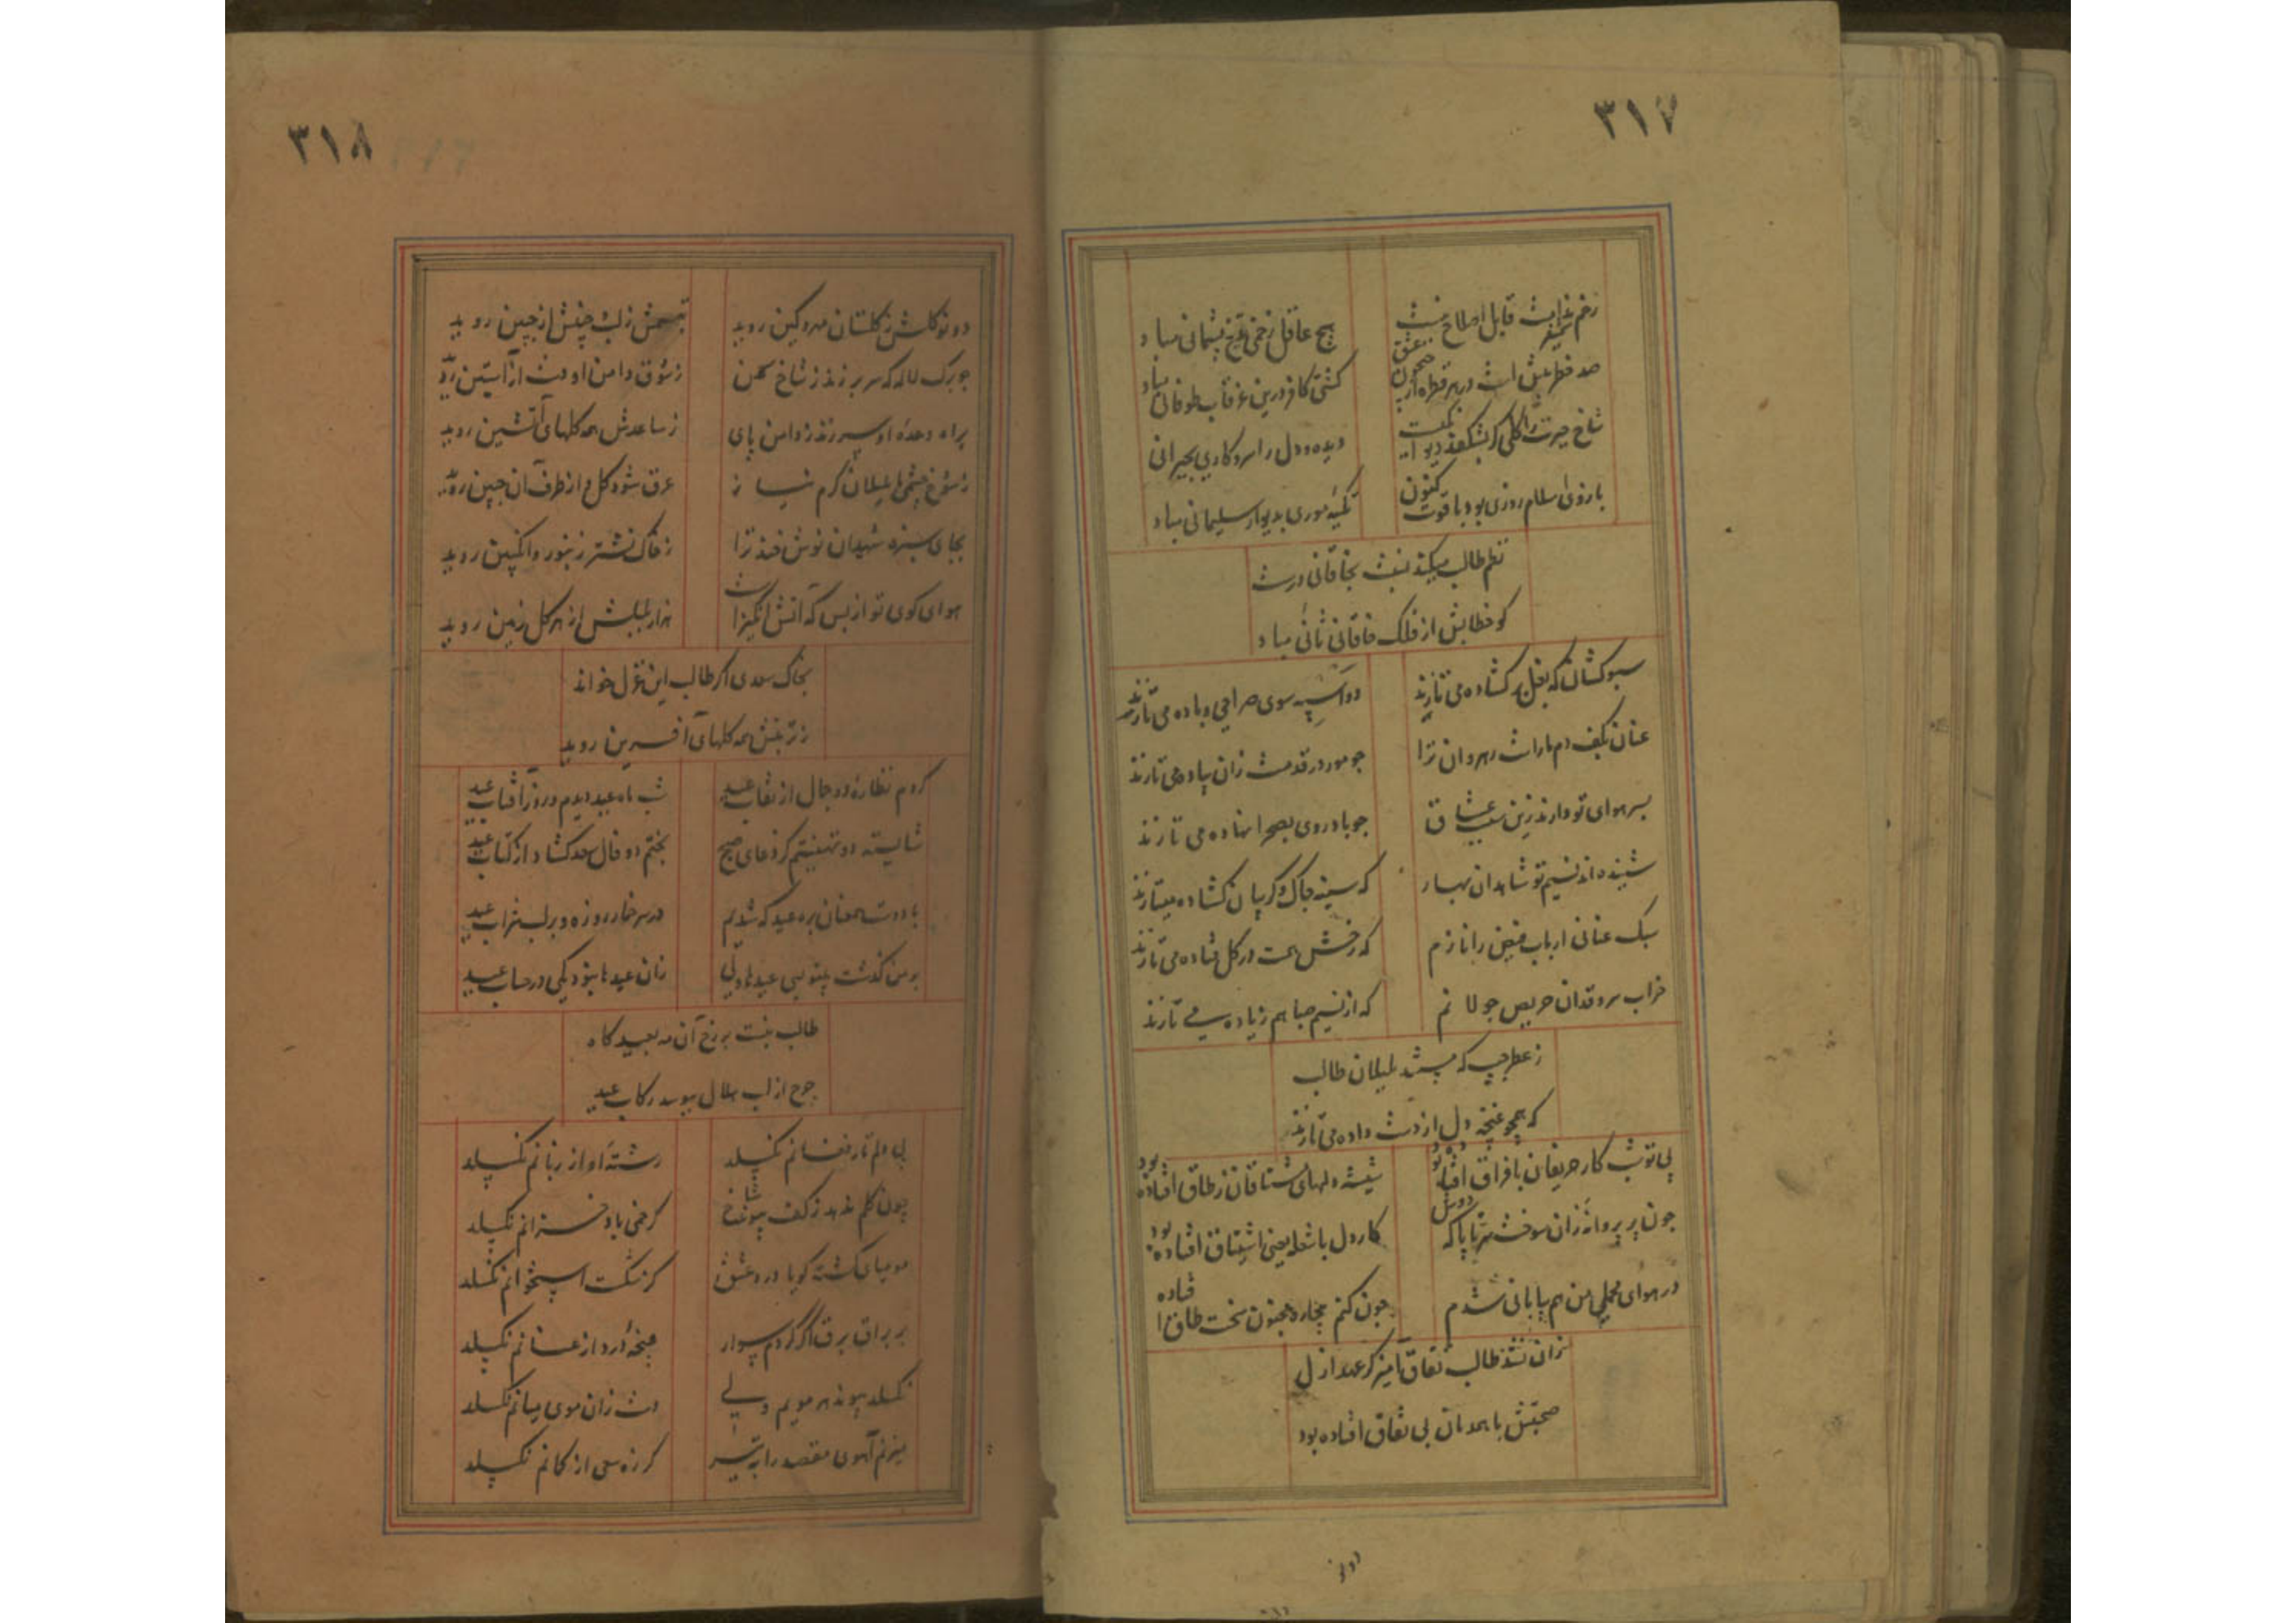 ۳۱۷
زخم ندامت قابل اصلاح نیست
هیچ عاقل زخمی تیغ پشیمانی مباد
صد خطر عشق است در هر قطره از
کشتی کافر درین غرقاب طوفانی مباد
شاخ حیرت را گلی گر بشکفد
دیده و دل را سر و کاری بحیرانی
بازوی اسلام روزی بود با قوت کنون
تکیه موری بدیوار سلیمانی مباد
نظم طالب میکند نسبت بخاقانی درست
کو خطابش از فلک خاقانی ثانی مباد
سبوکشان که بغل برکشاده می تازند
دواسپه سوی صراحی و باده می تازند
عنان بکف دم ماراست رهروان ترا
جو مور در قدمت زان پیاده می تازند
بسر هوای تو دارند زین سبب عشاق
جو باد روی بصحرا نهاده می تازند
شنیده اند نسیم تو شاهدان بهار
که سینه جاک و کریبان کشاده میتازند
سبک عنانی ارباب فیض را نازم
که رخش بحت در کل فتاده می تازند
خراب سروقدان حریص جولانم
که از نسیم صبا هم زیاده می تازند
ز عطر جیب که بلبلان طالب
که همچو غنچه دل از دست داده می تازند
بی تو شب کار حریفان با فراق افتاده بود
شیشه دلهای مشتاقان ز طاق افتاده بود
جون پر پروانه زان سوخت سرتاپا که دوش
کار دل با شعله یعنی اشتیاق افتاده بود
در هوای محملی من هم بیابانی شدم
جون کنم بیجاره مجنون سخت طاق افتاده
زان نشد طالب نفاق آمیز کز عهد ازل
صحبتش با همدمان بی نفاق افتاده بود
دو نو
۳۱۸
دو نو کلش ز کلستان مه و کین روید
تبسمش ز لب و چینش از جبین روید
جو برک لاله که سر بر زند ز شاخ سمن
ز شوق دامن او دست از آستین روید
براه وعده او سر زند ز دامن پای
ز ساعدش همه کلهای آتشین روید
ز شوخ چشمی بلبلان کرم نیاز
عرق شود کل و از طرف آن جبین روید
بجای سبزه شهیدان نوش خند ترا
ز خاک نشتر زنبور و انگبین روید
هوای کوی تو از بس که آتش انگیز است
هزار بلبلش از هر کل زمین روید
بخاک سعدی اکر طالب این غزل خواند
ز تربتش همه کلهای آفرین روید
کردم نظاره دو جمال از نقاب عید
شب ماه عید دیدم و روز آفتاب عید
شایسته دو تهنیتم کز دعای صبح
بختم دو فال سعد کشاد از کتاب عید
با دوست همعنان بره عید که شدیم
در سر خمار روزه و بر لب شراب عید
بر من کذشت بیتو بسی عیدها ولی
زان عیدها نبود یکی در حساب عید
طالب بنیت برزخ آن مه بعید کاه
چرخ از لب هلال ببوسد رکاب عید
بی دلم تار فغانم نکسلد
رشته او از زبانم نکسلد
چون کلم ندهد ز کف پیوند شاخ
کر خمی باد خزانم نکسلد
مومیای کشته کویا درد عشق
کز شکست استخوانم نکسلد
بر براق برق اکر کردم سوار
پنجه درد از عنانم نکسلد
نکسلد پیوند هر مویم ولی
دست زان موی میانم نکسلد
میزنم آهوی مقصد را به تیر
کر زه سعی از کمانم نکسلد